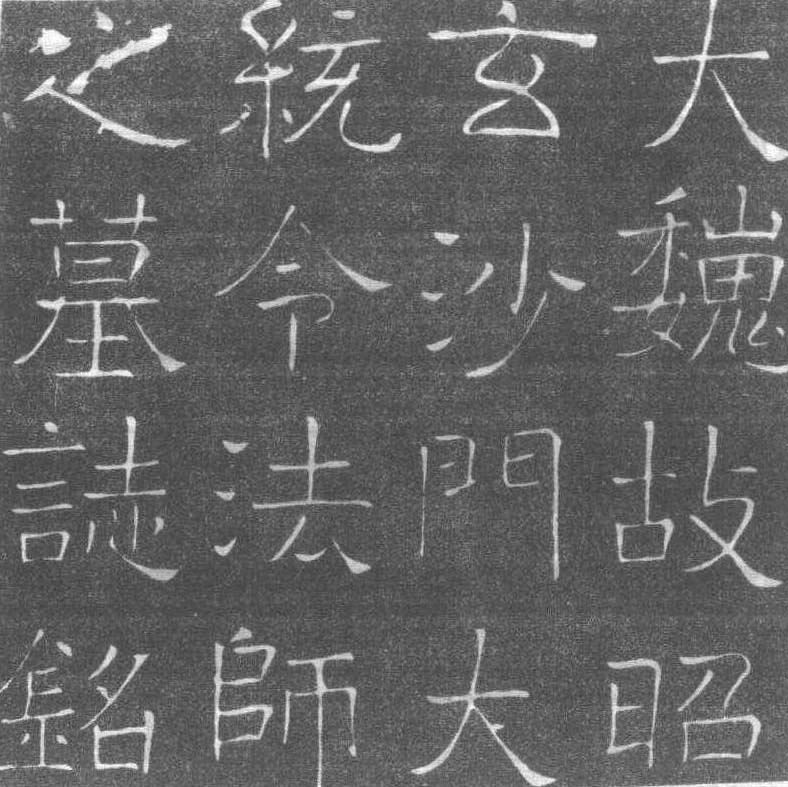 大魏故昭
玄沙門大
統令法師
之墓誌銘